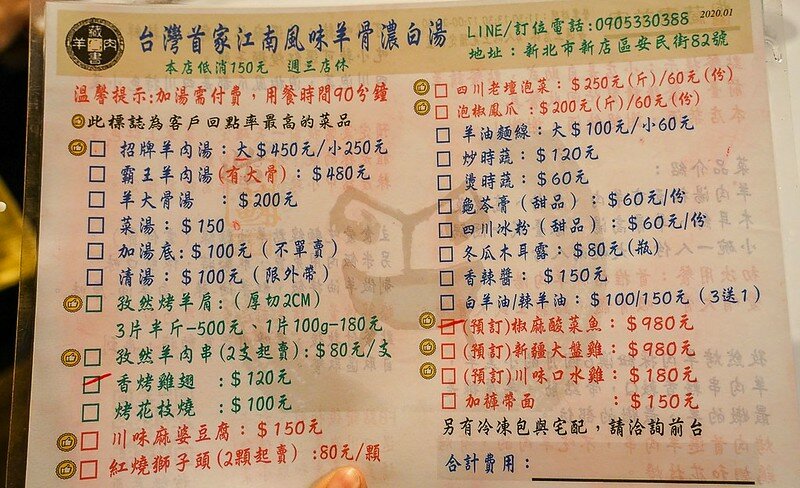 藏書羊肉
台灣首家江南風味羊骨濃白湯
本店低消150元 週三店休
LINE/訂位電話:0905330388
2020.01
地址：新北市新店區安民街82號
溫馨提示:加湯需付費，用餐時間90分鐘
此標誌為客戶回點率最高的菜品
招牌羊肉湯：大$450元/小250元
霸王羊肉湯(有大骨)：$480元
羊大骨湯：$200元
菜湯：$150
加湯底：$100元（不單賣）
清湯：$100元（限外帶）
孜然烤羊肩：（厚切2CM）
3片半斤-500元、1片100g-180元
孜然羊肉串(2支起賣)：$80元/支
香烤雞翅：$120元
烤花枝燒：$100元
川味麻婆豆腐：$150元
紅燒獅子頭(2顆起賣):80元/顆
四川老壇泡菜：$250元(斤)/60元(份)
泡椒鳳爪：$200元(斤)/60元(份)
羊油麵線：大$100元/小60元
炒時蔬：$120元
燙時蔬：$60元
龜苓膏（甜品）：$60元/份
四川冰粉（甜品）：$60元/份
冬瓜木耳露：$80元(瓶)
香辣醬：$150元
白羊油/辣羊油：$100/150元（3送1）
(預訂)椒麻酸菜魚：$980元
(預訂)新疆大盤雞：$980元
(預訂)川味口水雞：$180元
加褲帶面：$150元
另有冷凍包與宅配，請洽詢前台
合計費用：